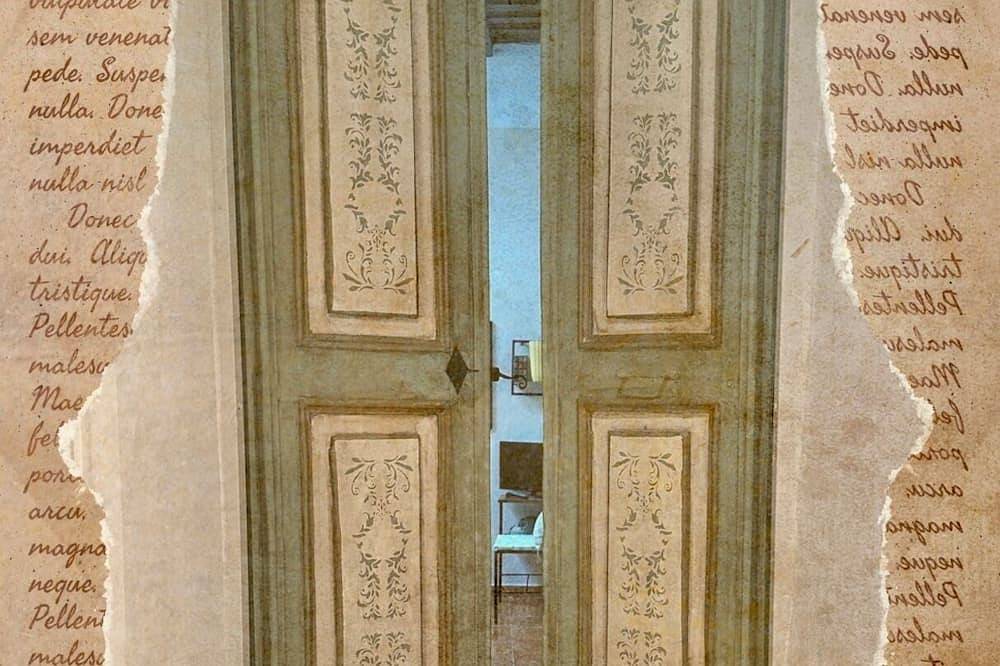 vulputate vi
sem venenat
pede. Suspe
nulla. Done
imperdiet
nulla nisl
Donec
dui. Aliqu
tristique.
Pellentes
malesu
Mae
fe
port
arcu.
magna
neque.
Pellent
malesu
sem venenat
pede. Suspe
nulla. Done
imperdiet
nulla nisl
Donec
dui. Aliqu
tristique.
Pellentes
malesu
Mae
fer
po
arcu.
magna
neque.
Pellent
malesu